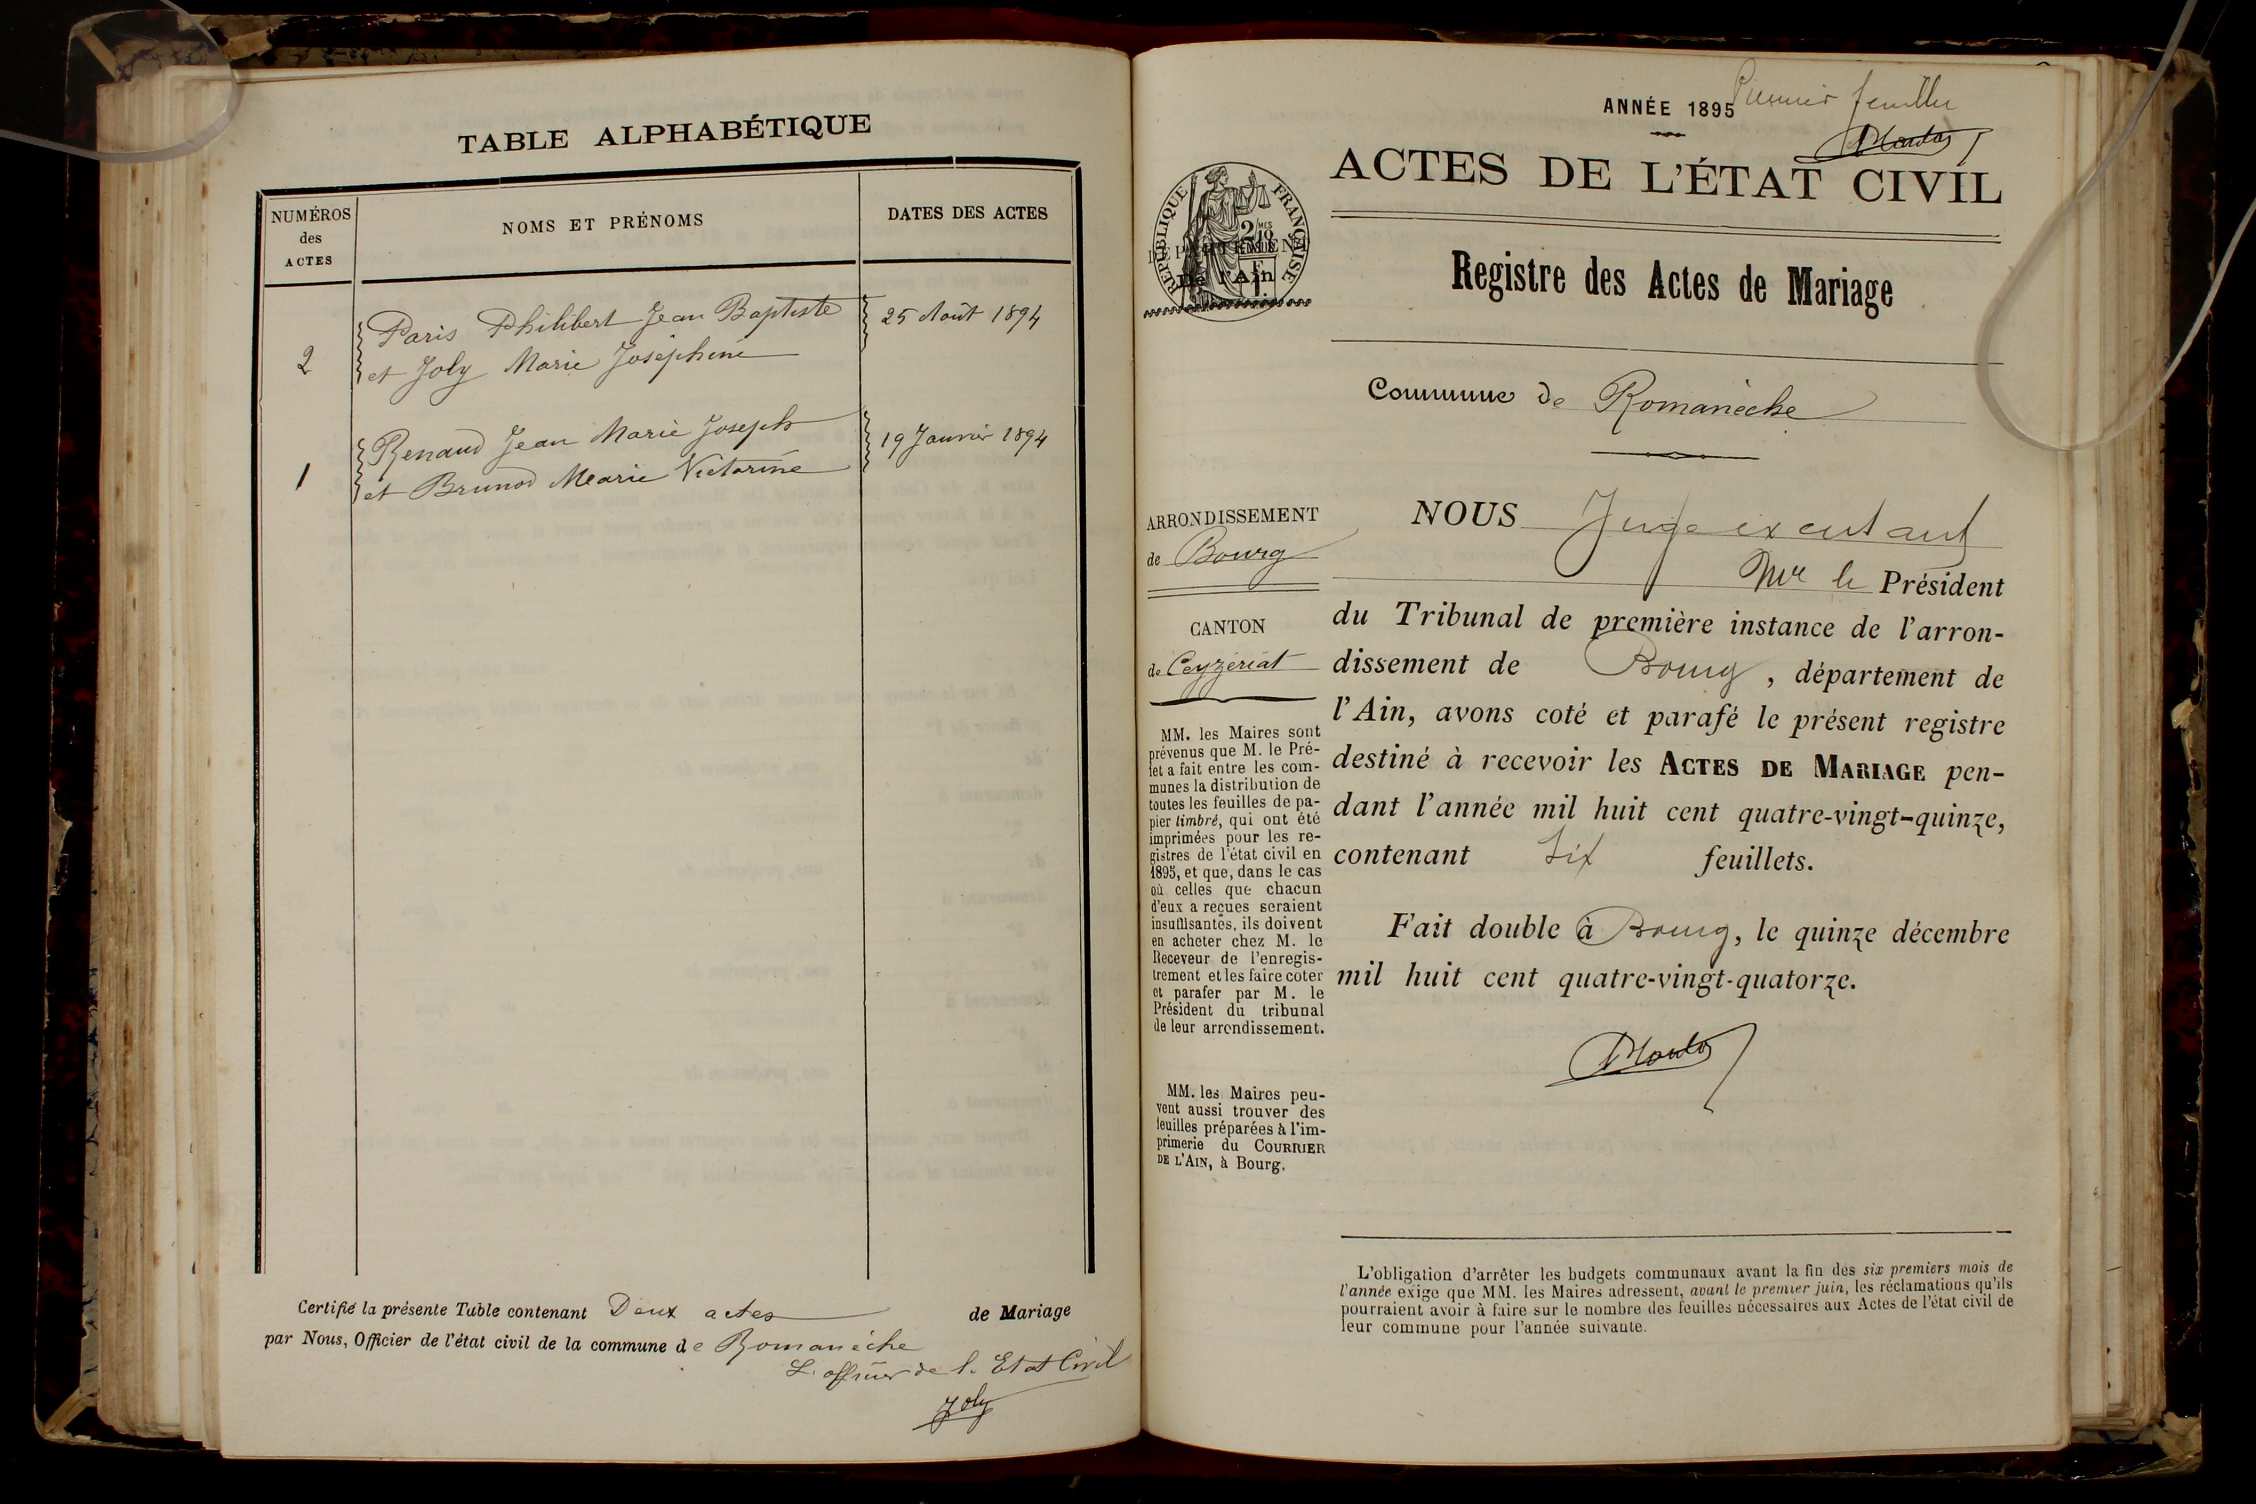 TABLE ALPHABÉTIQUE
NUMÉROS
des
ACTES
NOMS ET PRÉNOMS
DATES DES ACTES
2
Paris Philibert Jean Baptiste
et Joly Marie Joséphine
25 Août 1894
1
Renaud Jean Marie Joseph
et Brunod Marie Victorine
19 Janvier 1894
Certifié la présente Table contenant Deux actes de Mariage
par Nous, Officier de l'état civil de la commune de Romanèche
L'officier de l'Etat Civil
Joly
ANNÉE 1895
Premier feuillet
ACTES DE L'ÉTAT CIVIL
RÉPUBLIQUE FRANÇAISE
2/10
DÉPARTEMENT
De l'Ain
Registre des Actes de Mariage
Commune de Romanèche
ARRONDISSEMENT
de Bourg
CANTON
de Ceyzériat
MM. les Maires sont
prévenus que M. le Pré-
fet a fait entre les com-
munes la distribution de
toutes les feuilles de pa-
pier timbré, qui ont été
imprimées pour les re-
gistres de l'état civil en
1895, et que, dans le cas
où celles que chacun
d'eux a reçues seraient
insuffisantes, ils doivent
en acheter chez M. le
Receveur de l'enregis-
trement et les faire coter
et parafer par M. le
Président du tribunal
de leur arrondissement.
MM. les Maires peu-
vent aussi trouver des
feuilles préparées à l'im-
primerie du COURRIER
DE L'AIN, à Bourg.
NOUS Juge
Mr le Président
du Tribunal de première instance de l'arron-
dissement de Bourg, département de
l'Ain, avons coté et parafé le présent registre
destiné à recevoir les ACTES DE MARIAGE pen-
dant l'année mil huit cent quatre-vingt-quinze,
contenant Six feuillets.
Fait double à Bourg, le quinze décembre
mil huit cent quatre-vingt-quatorze.
L'obligation d'arrêter les budgets communaux avant la fin des six premiers mois de
l'année exige que MM. les Maires adressent, avant le premier juin, les réclamations qu'ils
pourraient avoir à faire sur le nombre des feuilles nécessaires aux Actes de l'état civil de
leur commune pour l'année suivante.